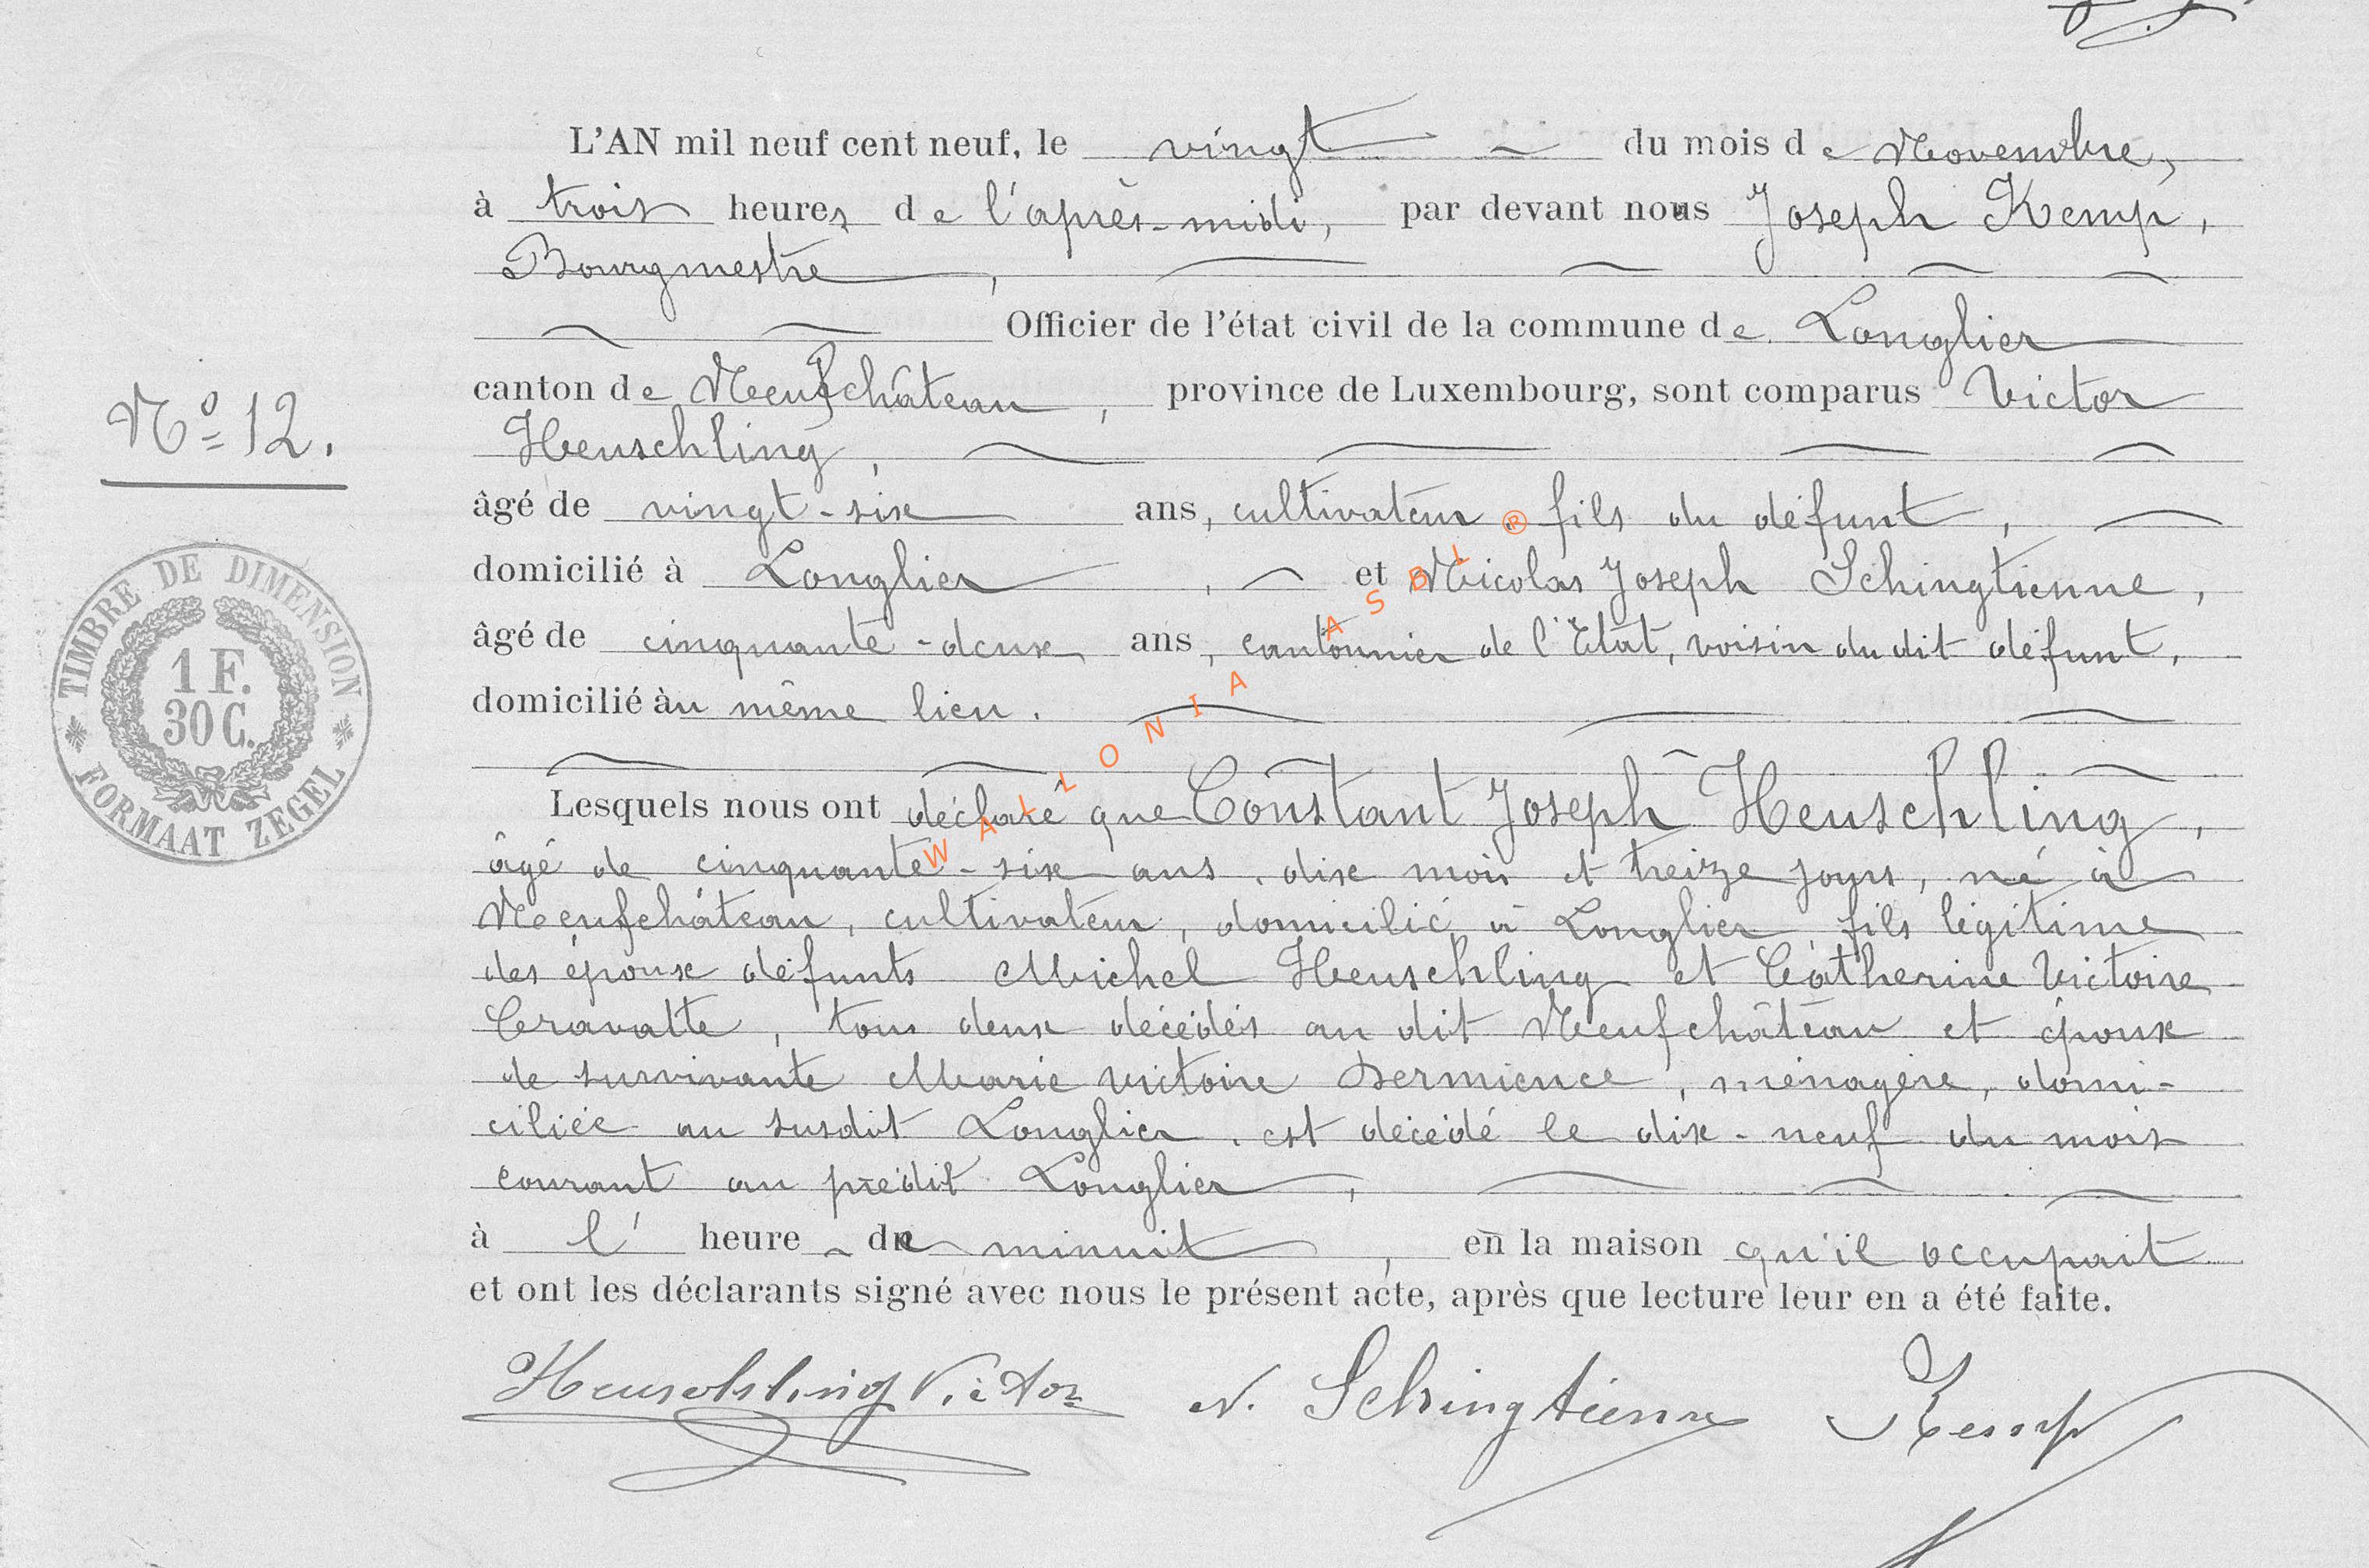 L'AN mil neuf cent neuf, le vingt du mois de Novembre,
à trois heures de l'après-midi, par devant nous Joseph Kemp,
Bourgmestre,
Officier de l'état civil de la commune de Longlier
canton de Neufchâteau, province de Luxembourg, sont comparus Victor
N° 12.
Heuschling,
âgé de vingt-six ans, cultivateur, fils du défunt,
domicilié à Longlier, et Nicolas Joseph Schingtienne,
âgé de cinquante-deux ans, cantonnier de l'Etat, voisin du dit défunt,
domicilié au même lieu.
TIMBRE DE DIMENSION
1 F.
30 C.
FORMAAT ZEGEL
WALLONIA ASBL ®
Lesquels nous ont déclaré que Constant Joseph Heuschling,
âgé de cinquante-six ans, dix mois et treize jours, né à
Neufchâteau, cultivateur, domicilié à Longlier, fils légitime
des époux défunts Michel Heuschling et Catherine Victoire
Cravatte, tous deux décédés au dit Neufchâteau et époux
de survivante Marie Victoire Dermience, ménagère, domi-
ciliée au susdit Longlier, est décédé le dix-neuf du mois
courant au prédit Longlier,
à l'heure de minuit, en la maison qu'il occupait
et ont les déclarants signé avec nous le présent acte, après que lecture leur en a été faite.
Heuschling Victor N. Schingtienne Kemp